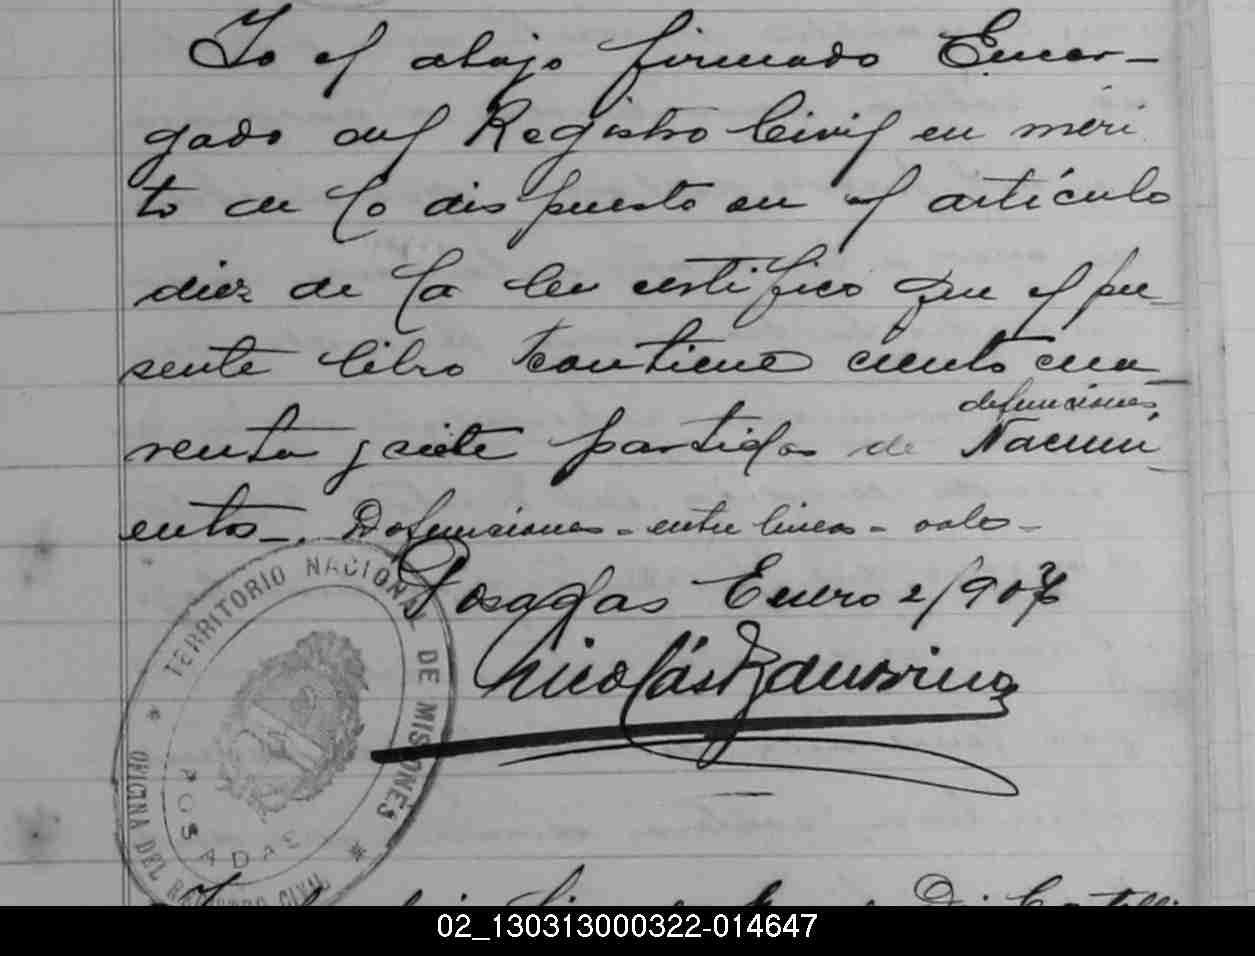 Yo el abajo firmado Encar-
gado del Registro Civil en méri
to de lo dispuesto en el artículo
diez de la ley certifico que el pre
sente libro contiene ciento cua
defunciones
renta y siete partidas de Nacimi
entos. Defunciones - entre lineas - vale -
Posadas Enero 2/907
Nicolás
TERRITORIO NACIONAL DE MISIONES
POSADAS
OFICINA DEL REGISTRO CIVIL
02_130313000322-014647